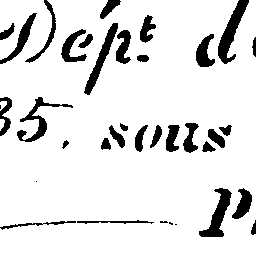 Dépt. d
35, sous
P